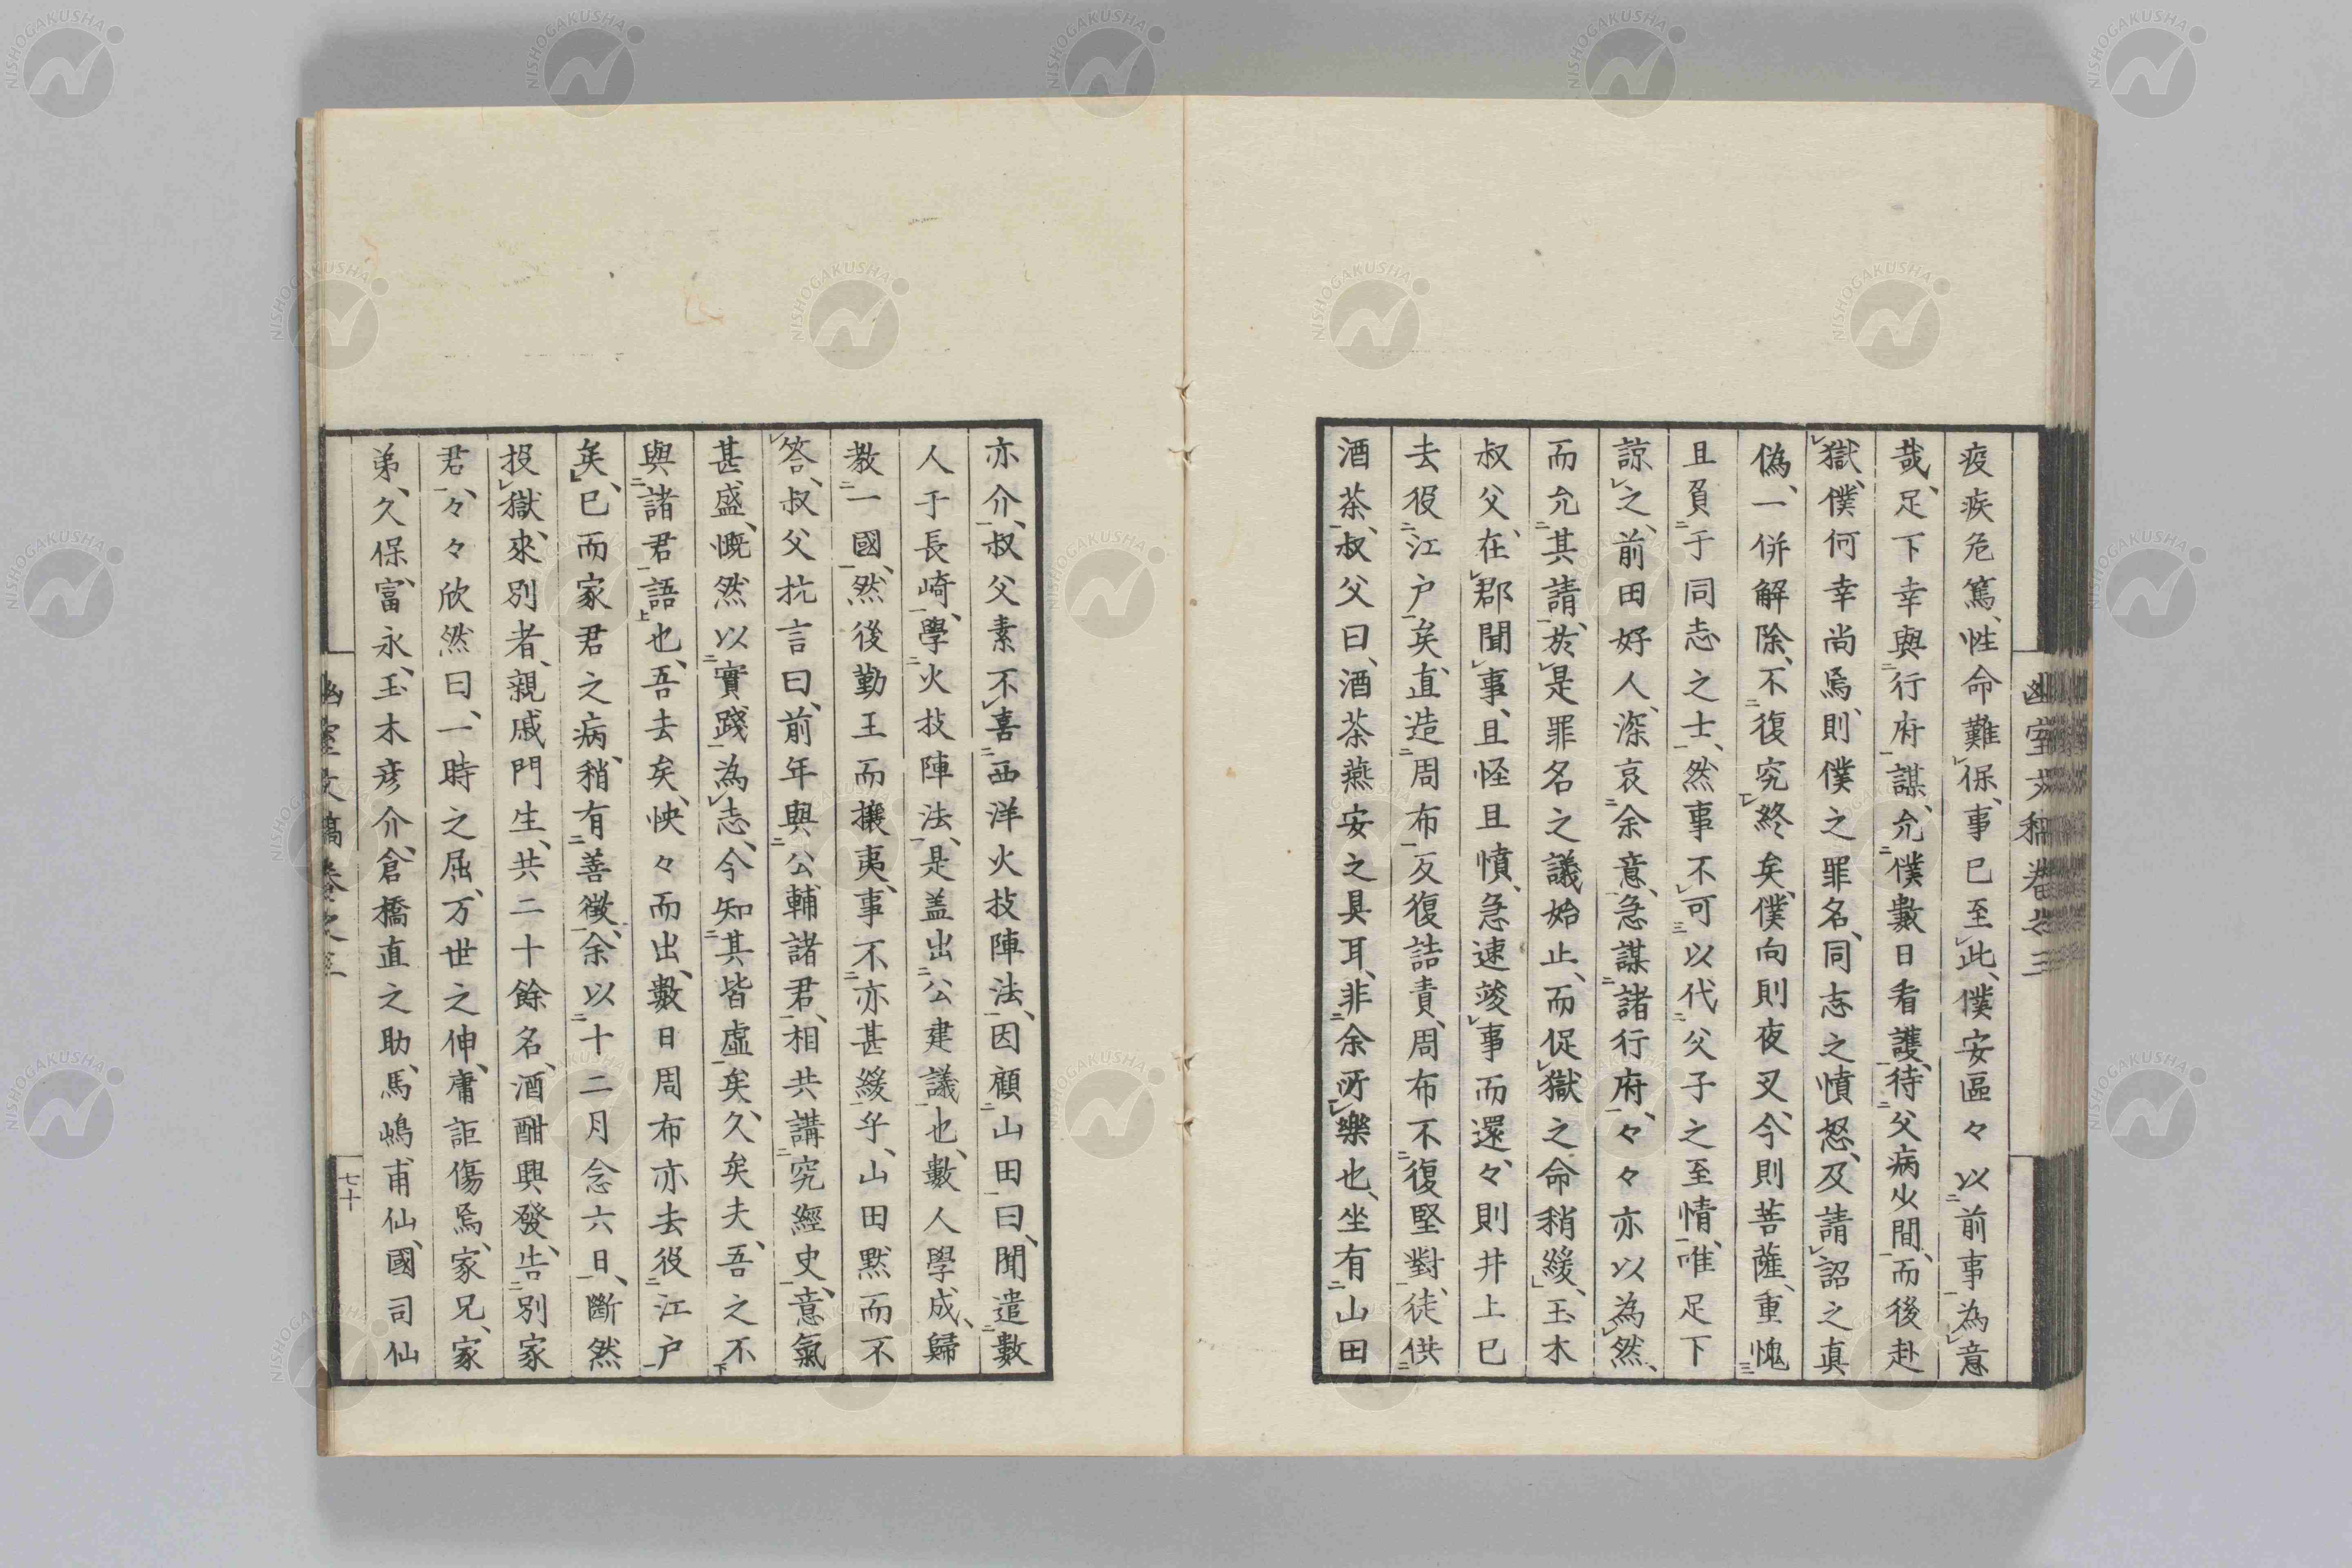 幽室文稿卷之三
疫疾危篤、性命難保、事已至此、僕安區々以前事為意
哉、足下幸與行府謀、允僕數日看護、待父病少間、而後赴
獄、僕何幸尚焉、則僕之罪名、同志之憤怒、及請詔之真
偽、一併解除、不復究終矣、僕向則夜叉、今則菩薩、重愧
且負于同志之士、然事不可以代父子之至情、唯足下
諒之、前田好人、深哀余意、急謀諸行府、々々亦以為然、
而允其請、於是罪名之議始止、而促獄之命稍緩、玉木
叔父、在郡聞事、且怪且憤、急速竣事而還、々則井上已
去役江戸矣、直造周布反復詰責、周布不復堅對、徒供
酒茶、叔父曰、酒茶燕安之具耳、非余所樂也、坐有山田
亦介、叔父素不喜西洋火技陣法、因顧山田曰、聞遣數
人于長崎、學火技陣法、是盖出公建議也、數人學成、歸
教一國、然後勤王而攘夷、事不亦甚緩乎、山田默而不
答、叔父抗言曰、前年與公輔諸君、相共講究經史、意氣
甚盛、慨然以實踐為志、今知其皆虛矣、久矣夫、吾之不
與諸君語也、吾去矣、怏々而出、數日周布亦去役江戸
矣、已而家君之病、稍有善徵、余以十二月念六日、斷然
投獄、來別者、親戚門生、共二十餘名、酒酣興發、告別家
君、々々欣然曰、一時之屈、万世之伸、庸詎傷焉、家兄、家
弟、久保、富永、玉木彦介、倉橋直之助、馬嶋甫仙、國司仙
幽室文稿卷之三
七十
NISHOGAKUSHA